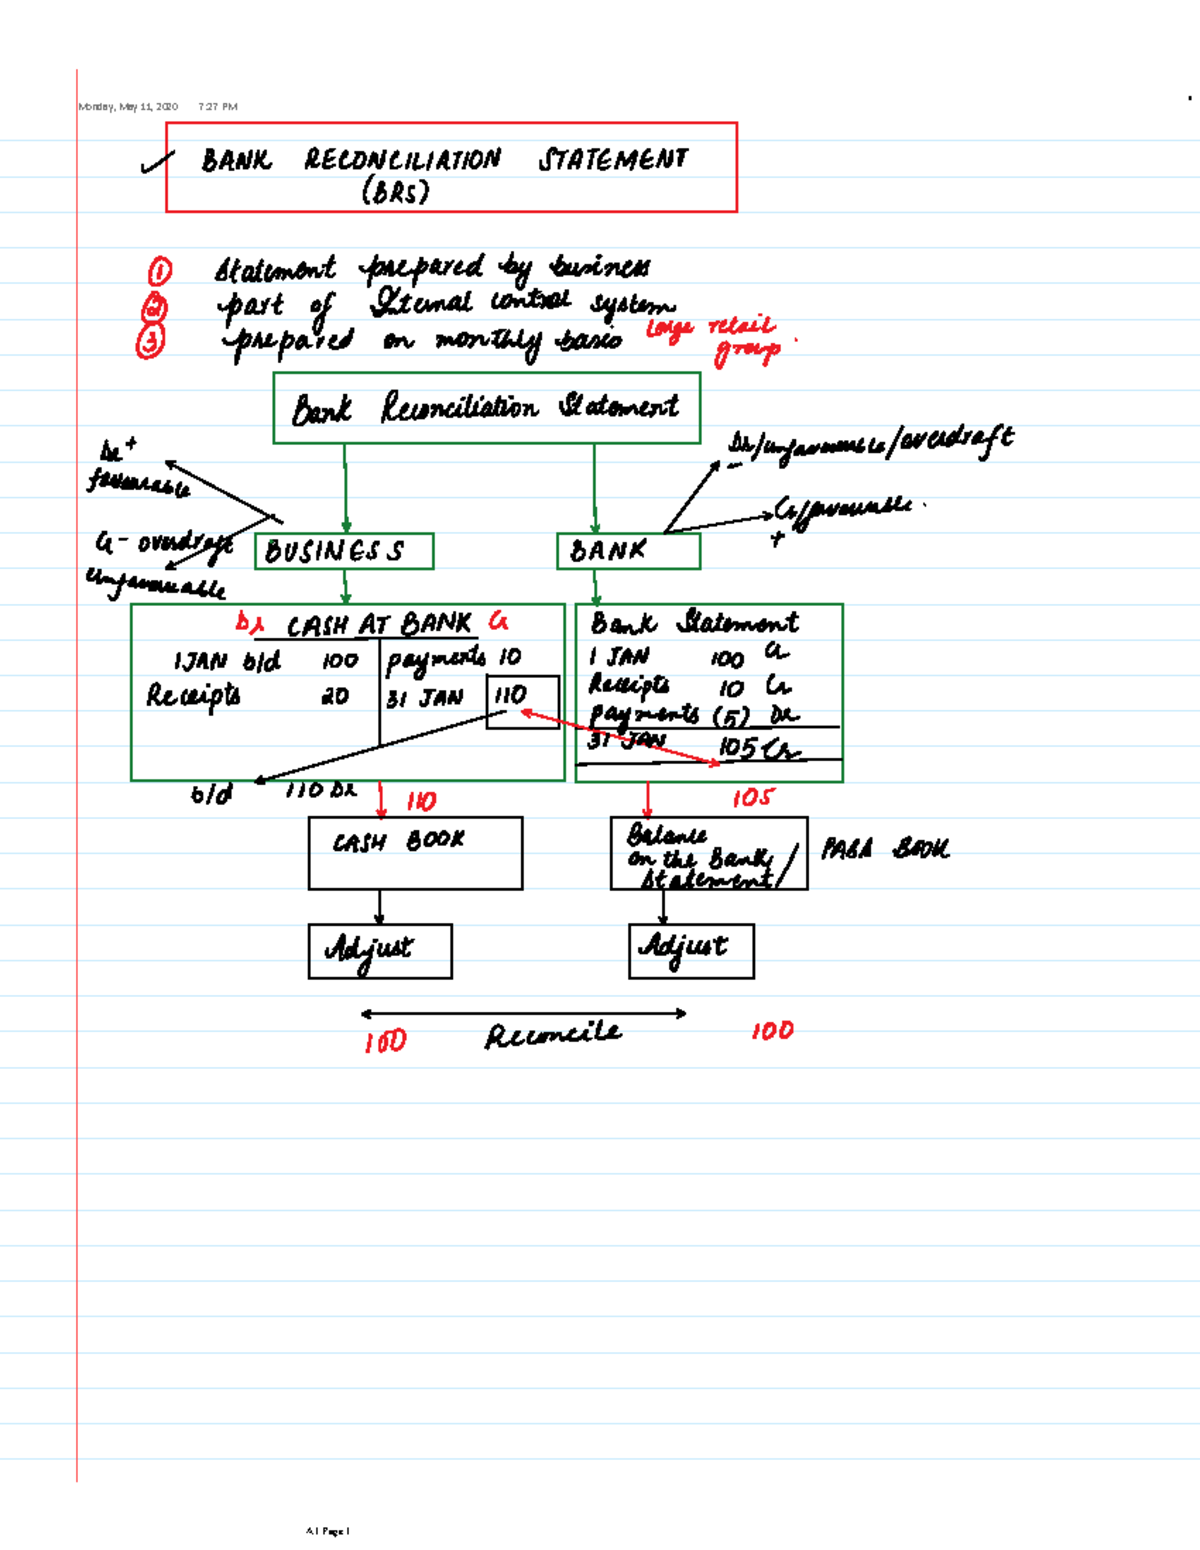 Monday, May 11, 2020 7:27 PM
BANK RECONCILIATION STATEMENT
(BRS)
① Statement prepared by business
② part of Internal control system
③ prepared on monthly basis large retail
group.
Bank Reconciliation Statement
Dr +
favourable
Cr - overdraft
Unfavourable
Dr/unfavourable/overdraft
-
Cr/favourable.
+
BUSINESS
BANK
Dr CASH AT BANK Cr
1 JAN b/d 100 payments 10
Receipts 20 31 JAN 110
b/d 110 Dr
Bank Statement
1 JAN 100 Cr
Receipts 10 Cr
payments (5) Dr
31 JAN 105 Cr
110
105
CASH BOOK
Balance
on the Bank
Statement/
PASS BOOK
Adjust
Adjust
100 Reconcile 100
A.1 Page 1